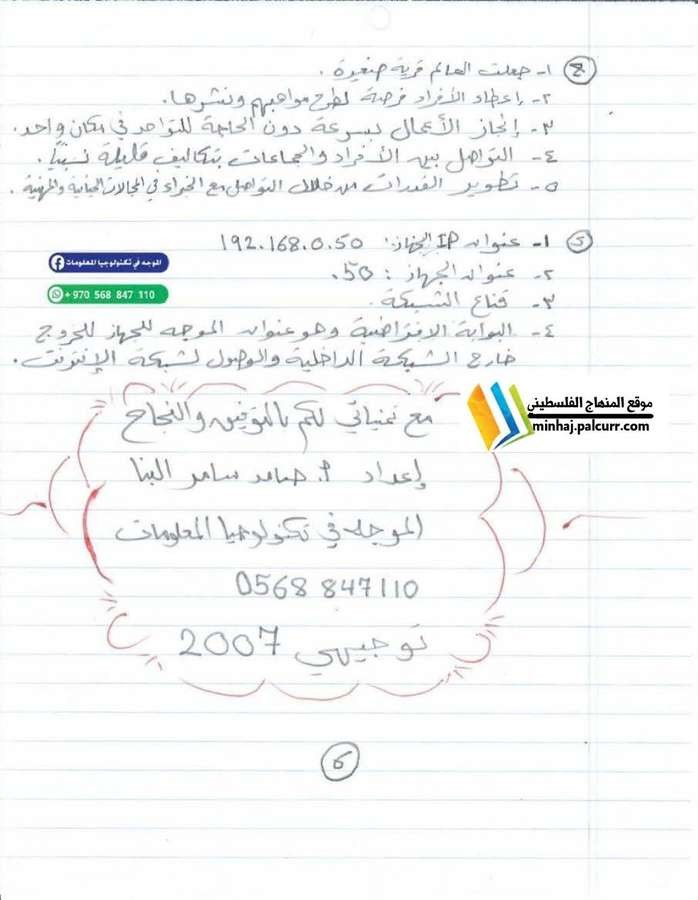 ج
١- جعلت العالم قرية صغيرة.
٢- إعطاء الأفراد فرصة لطرح مواهبهم ونشرها.
٣- إنجاز الأعمال بسرعة دون الحاجة للتواجد في مكان واحد.
٤- التواصل بين الأفراد والجماعات بتكاليف قليلة نسبيًا.
٥- تطوير القدرات من خلال التواصل مع الخبراء في المجالات الحياتية والمهنية.
١- عنوان IP الجهاز: 192.168.0.50
٢- عنوان الجهاز: 50.
٣- قناع الشبكة.
٤- البوابة الافتراضية وهو عنوان الموجه للجهاز للخروج
خارج الشبكة الداخلية والوصول لشبكة الإنترنت.
الموجه في تكنولوجيا المعلومات
+970 568 847 110
موقع المنهاج الفلسطيني
minhaj.palcurr.com
مع تمنياتي لكم بالتوفيق والنجاح
إعداد أ. صامد سامر البنا
الموجه في تكنولوجيا المعلومات
0568 847110
توجيهي 2007
6